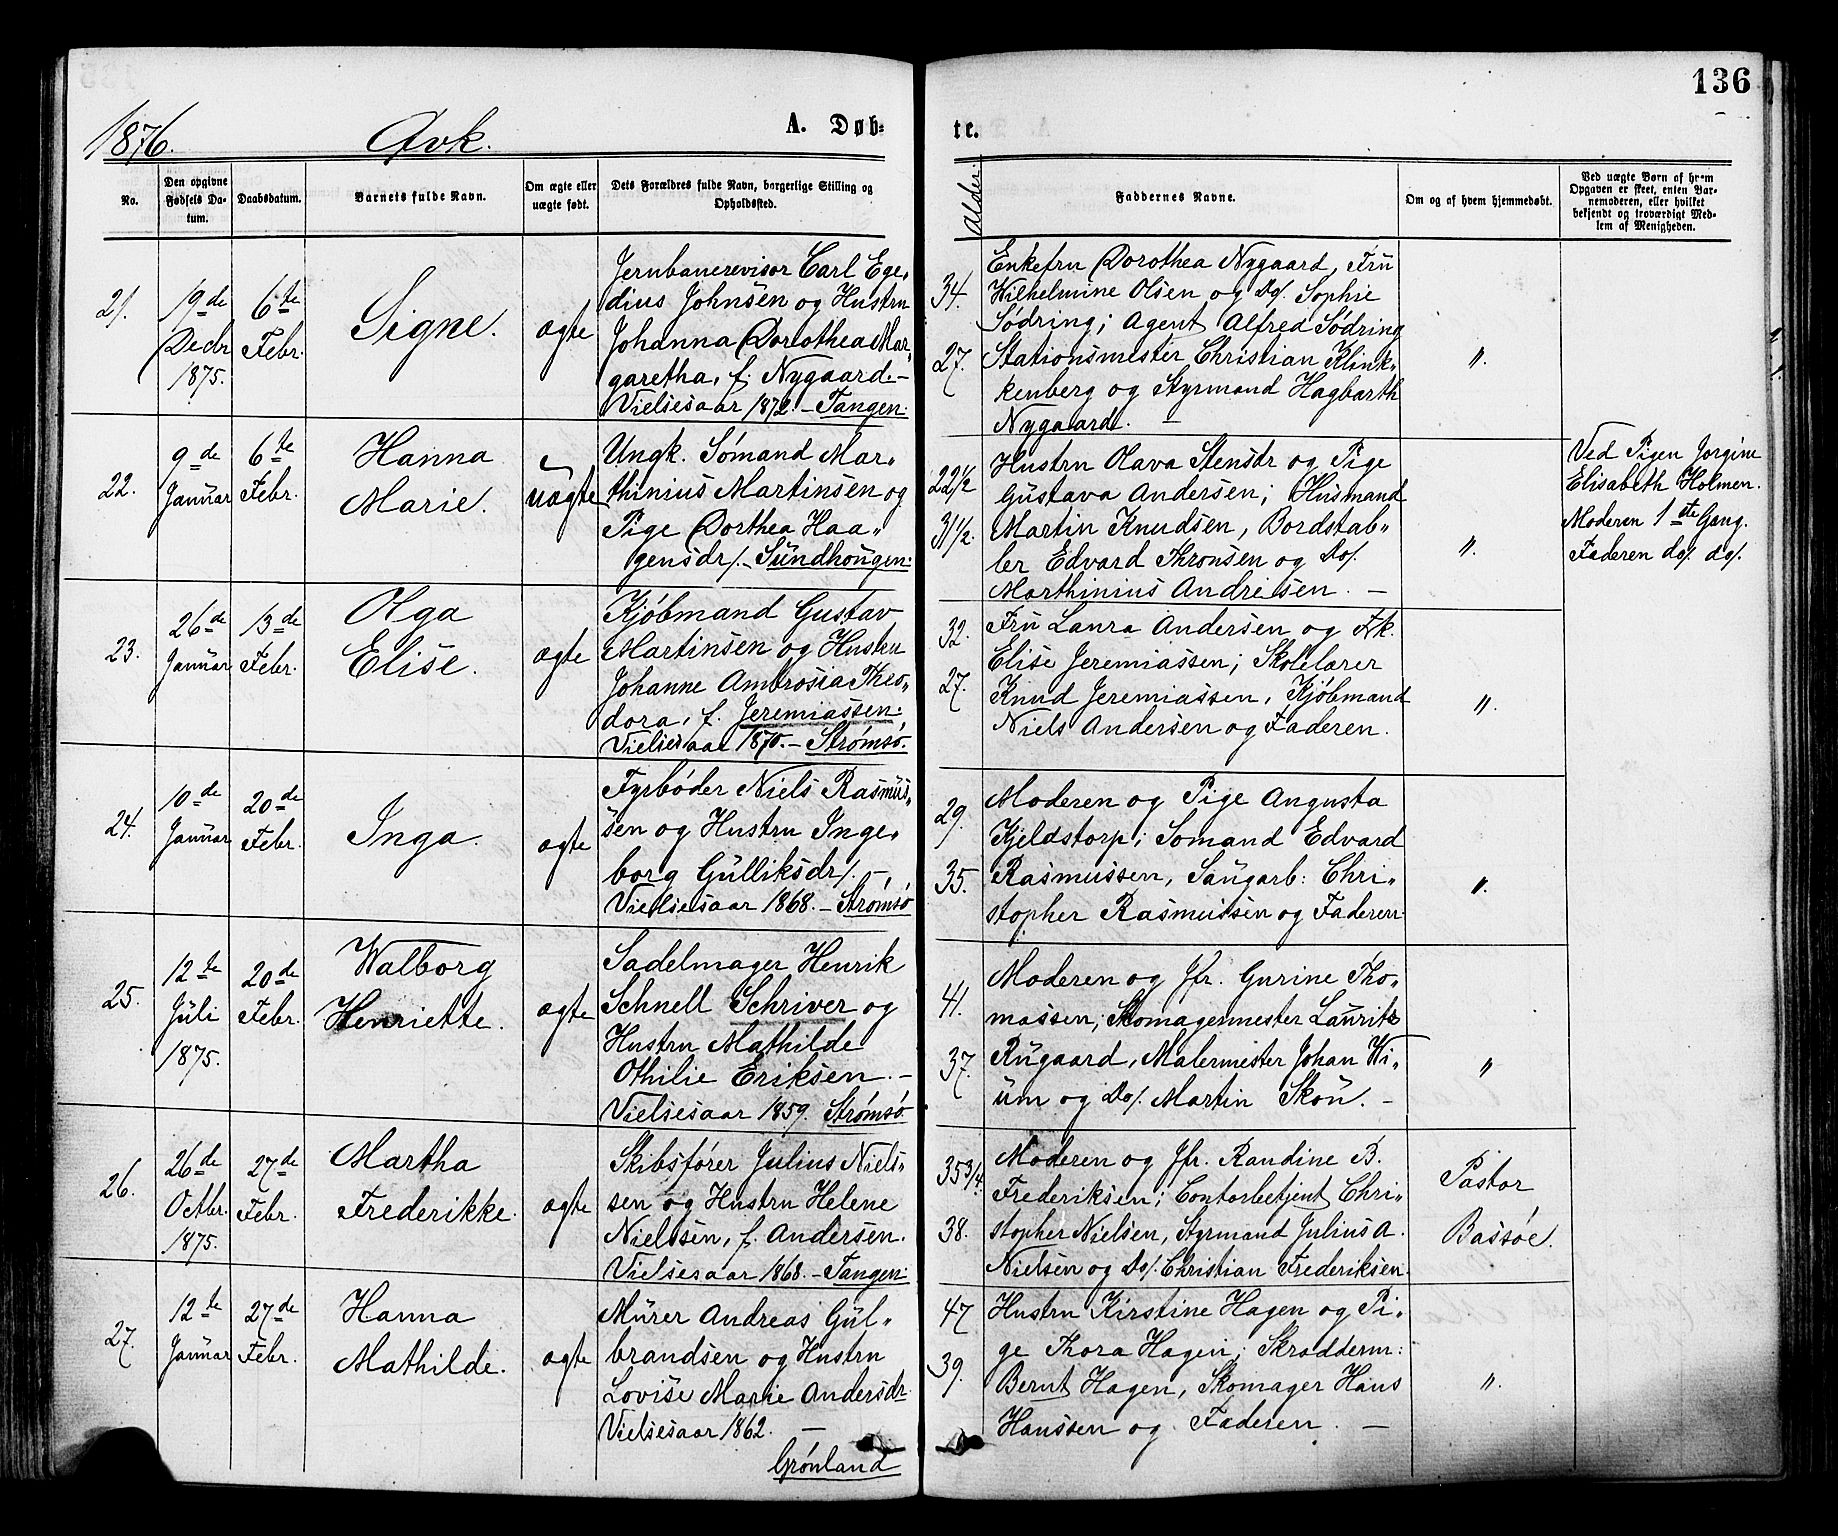 136
1876. Qvk. A. Døb- te.
No.
Den opgivne Fødsels Datum.
Daabsdatum.
Barnets fulde Navn.
Om ægte eller uægte født.
Dets Forældres fulde Navn, borgerlige Stilling og Opholdssted.
Alder.
Faddernes Navne.
Om og af hvem hjemmedøbt.
Ved uægte Børn af hvem Opgaven er skeet, enten Barnemoderen, eller hvilket bekjendt og troværdigt Medlem af Menigheden.
21.
19de
Decbr
1875.
6te
Febr.
Signe.
ægte
Jernbanerevisor Carl Ege„
dius Johnsen og Hustru
Johanna Dorothea Mar„
garetha, f. Nygaard.—
Vielsesaar 1872.—Tangen.
34.
27.
Enkefru Dorothea Nygaard, Fru
Wilhelmine Olsen og Do/. Sophie
Södring; Agent Alfred Södring
Stationsmester Christian Klink„
kenberg og Styrmand Hagbarth
Nygaard. —
„.
22.
9de
Januar
6te
Febr.
Hanna
Marie.
uægte
Ungk. Sømand Mar„
thinius Martinsen og
Pige Dorthea Haa„
gensdr/.—Sundhougen.
22 1/2
31 1/2.
Hustru Olava Stensdr og Pige
Gustava Andersen; Husmand
Martin Knudsen, Bordstab„
ler Edvard Thronsen og Do/.
Marthinius Andreisen. —
„.
Ved Pigen Jorgine
Elisabeth Holmen.
Moderen 1ste Gang.
Faderen do/. do/.
23.
26de
Januar
13de
Febr.
Olga
Elise.
ægte
Kjøbmand Gustav
Martinsen og Hustru
Johanne Ambrosia Theo„
dora, f. Jeremiassen.
Vielsesaar 1870.—Strømsø.
32.
27.
Fru Laura Andersen og Frk.
Elise Jeremiassen; Skolelærer
Knud Jeremiassen, Kjøbmand
Niels Andersen og Faderen.
„.
24.
10de
Januar
20de
Febr.
Inga.
ægte
Fyrbøder Niels Rasmus„
sen og Hustru Inge„
borg Gulliksdr/.—
Vielsesaar 1868.—Strømsø
29.
35.
Moderen og Pige Augusta
Kjeldstorp; Sømand Edvard
Rasmussen, Saugarb: Chri„
stopher Rasmussen og Faderen.
„.
25.
12te
Juli
1875.
20de
Febr.
Walborg
Henriette.
ægte
Sadelmager Henrik
Schnell Schriver og
Hustru Mathilde
Othilie Eriksen.—
Vielsesaar 1859. Strømsø
41.
37.
Moderen og Jfr. Gurine Tho„
massen; Skomagermester Lauritz
Rugaard, Malermester Johan Wi„
um og Do/. Martin Skou. —
„
26.
26de
Octbr.
1875.
27de
Febr.
Martha
Frederikke.
ægte
Skibsfører Julius Niels„
sen og Hustru Helene
Nielssen, f. Andersen.
Vielsesaar 1868.—Tangen.
35 3/4.
38.
Moderen og Jfr. Randine B.
Frederiksen; Contorbetjent Chri„
stopher Nielsen, Styrmand Julius A.
Nielsen og Do/. Christian Frederiksen.
Pastor
Bassøe.
27.
12te
Januar
27de
Febr.
Hanna
Mathilde.
ægte
Murer Andreas Gul„
brandsen og Hustru
Lovise Marie Andersdr.
Vielsesaar 1862. —
Grönland
47
39.
Hustru Kirstine Hagen og Pi„
ge Thora Hagen; Skrædderm:
Bernt Hagen, Skomager Hans
Hanssen og Faderen. —
„.